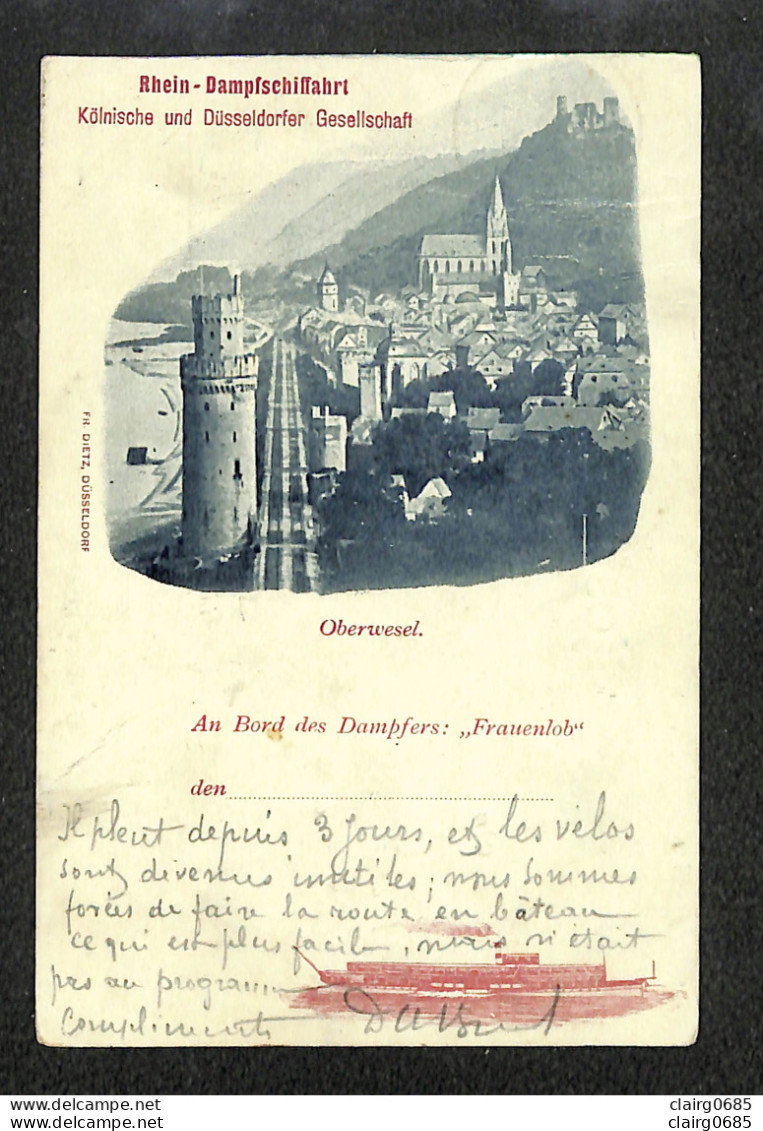 Rhein-Dampfschiffahrt
Kölnische und Düsseldorfer Gesellschaft
FR. DIETZ, DÜSSELDORF
Oberwesel.
An Bord des Dampfers: „Frauenlob“
den
Il pleut depuis 3 jours, et les vélos
sont devenus inutiles; nous sommes
forcés de faire la route en bâteau
ce qui est plus facile, mais n'était
pas au programme
Compliments
www.delcampe.net
www.delcampe.net
clairg0685
clairg0685